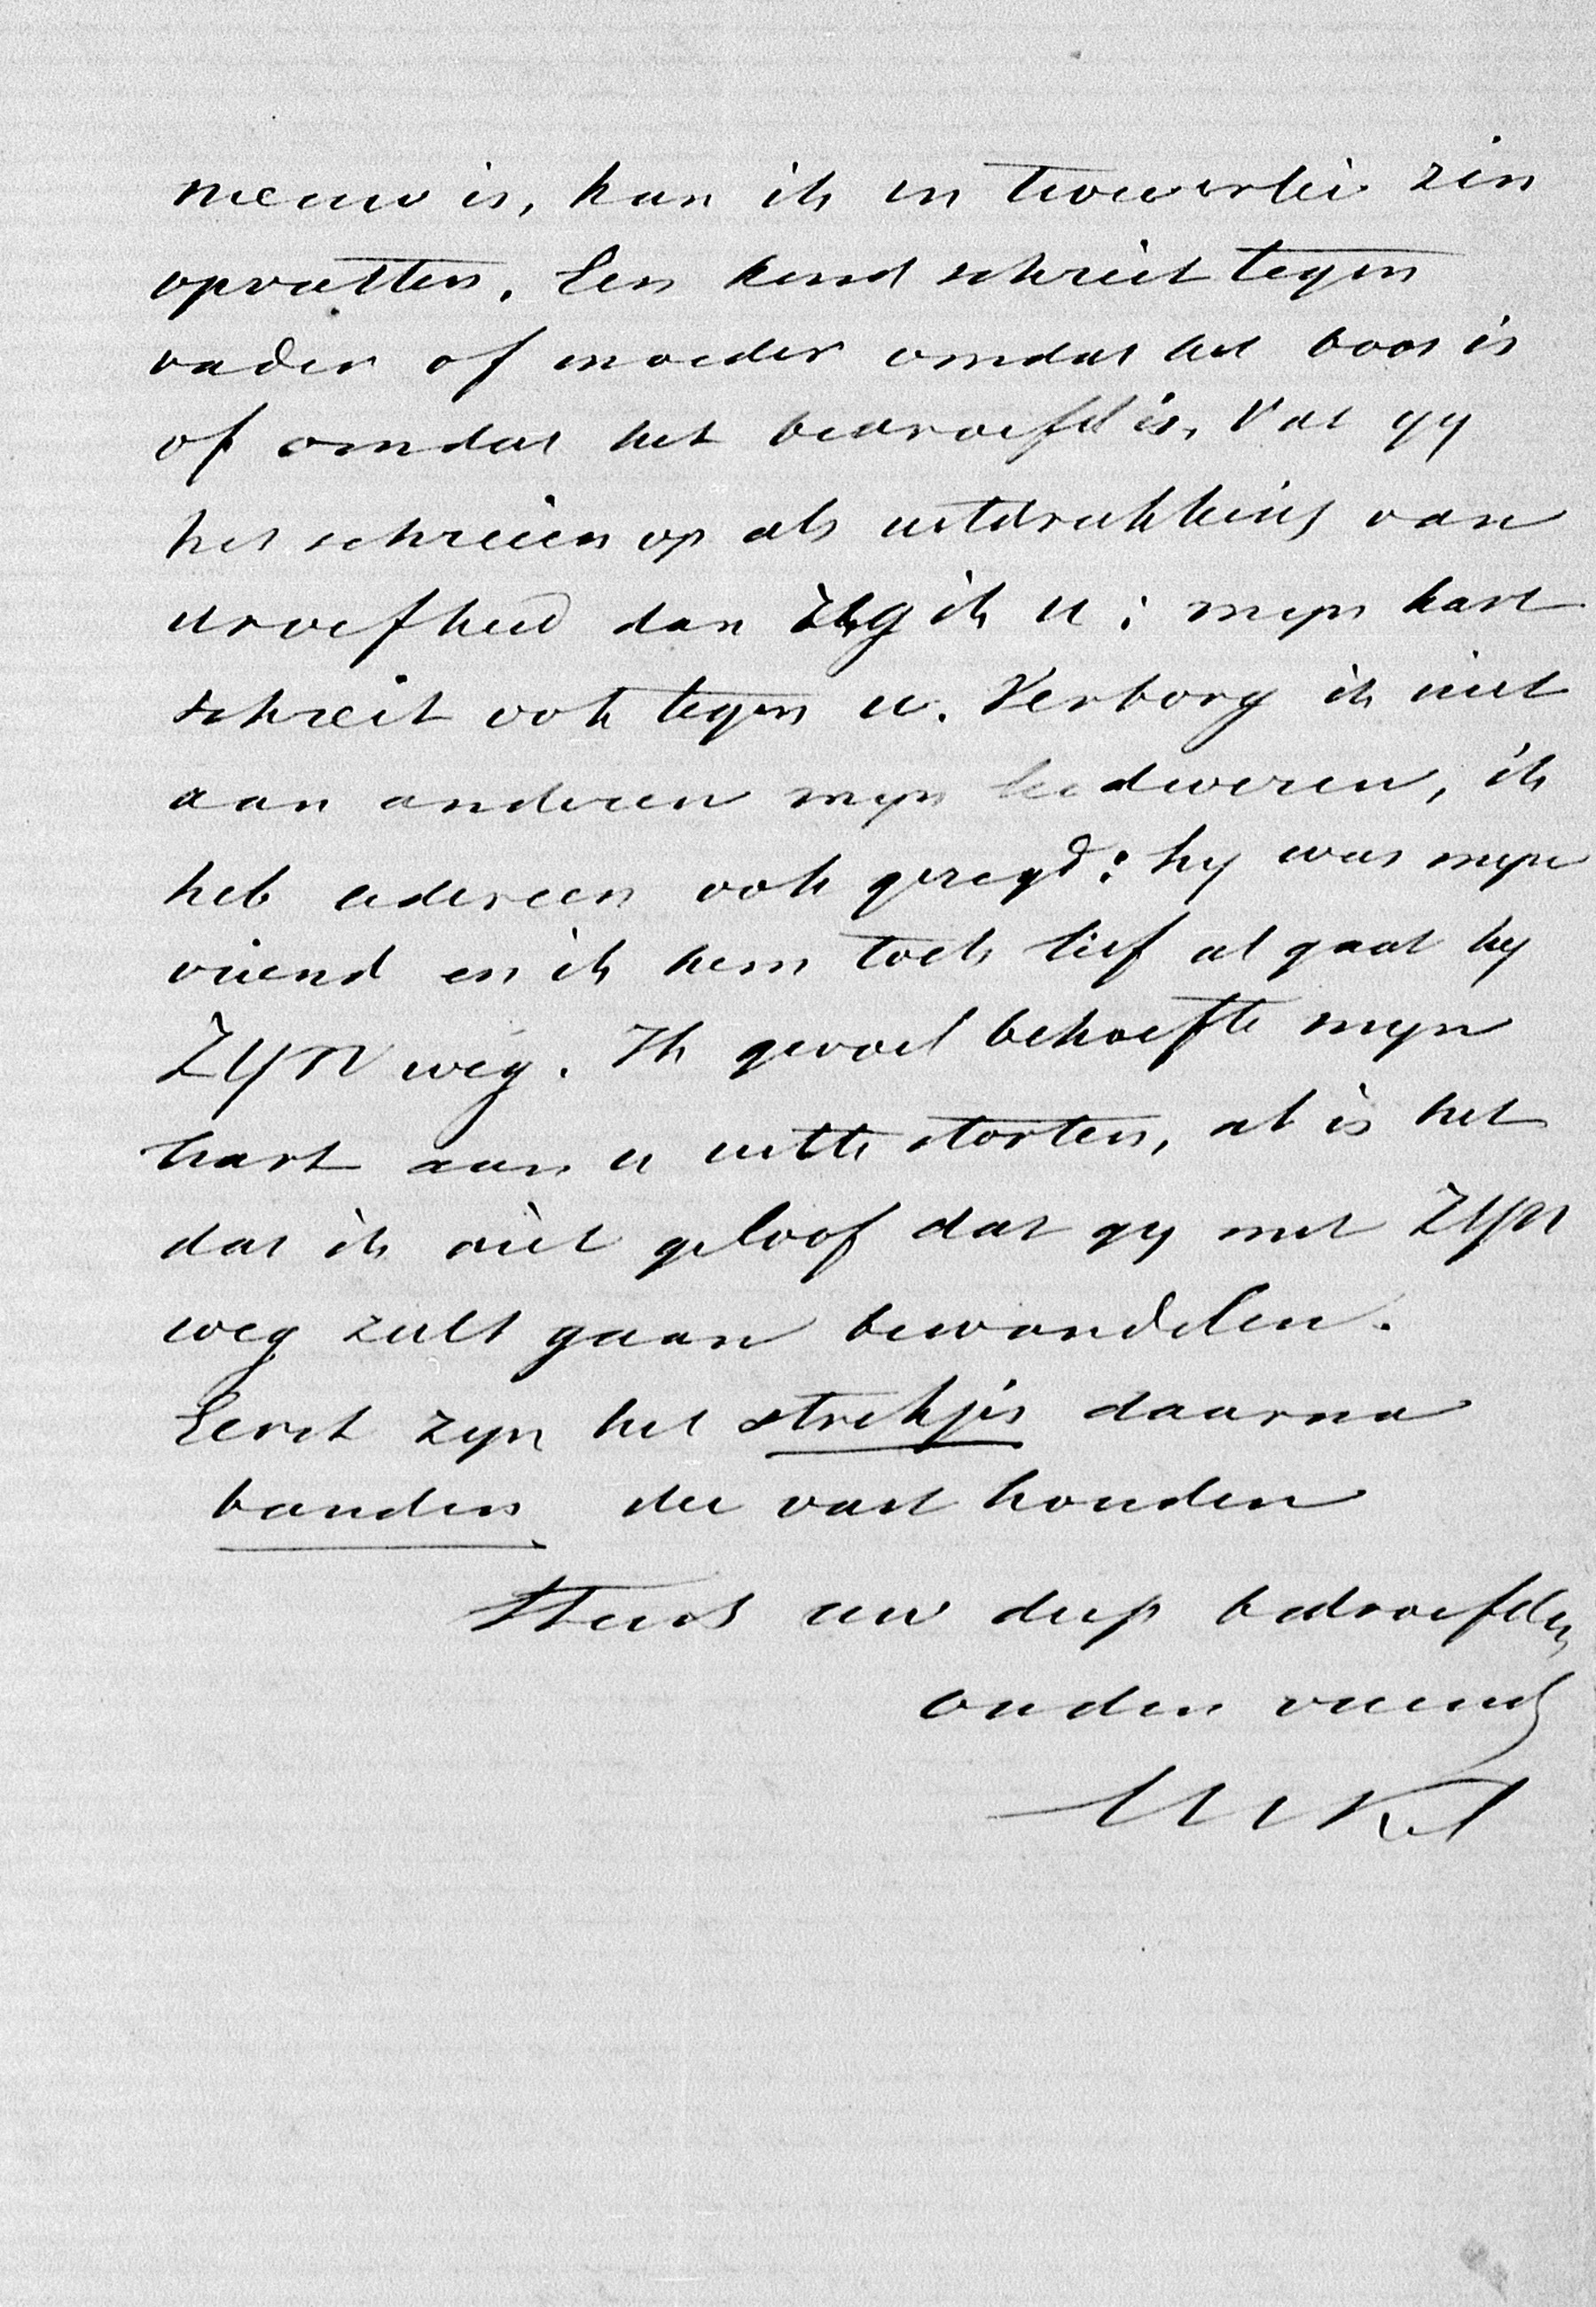 nieuw is, kan ik in tweeerlei zin
opvatten. Een kind schreit tegen
vader of moeder omdat het boos is
of omdat het bedroefd is. Vat gy
het schreien op als uitdrukking van
droefheid dan zeg ik u: myn hart
schreit ook tegen u. Verborg ik niet
aan anderen myn leedwezen, ik
heb iedereen ook gezegd: hy was myn
vriend en ik hem toch lief al gaat hy
ZYN weg. Ik gevoel behoefte myn
hart aan u uit te storten, al is het
dat ik niet geloof dat gy met ZYN
weg zult gaan bewandelen.
Eerst zyn het strikjes daarna
banden die vast houden
Steeds uw diep bedroefden
ouden vriend